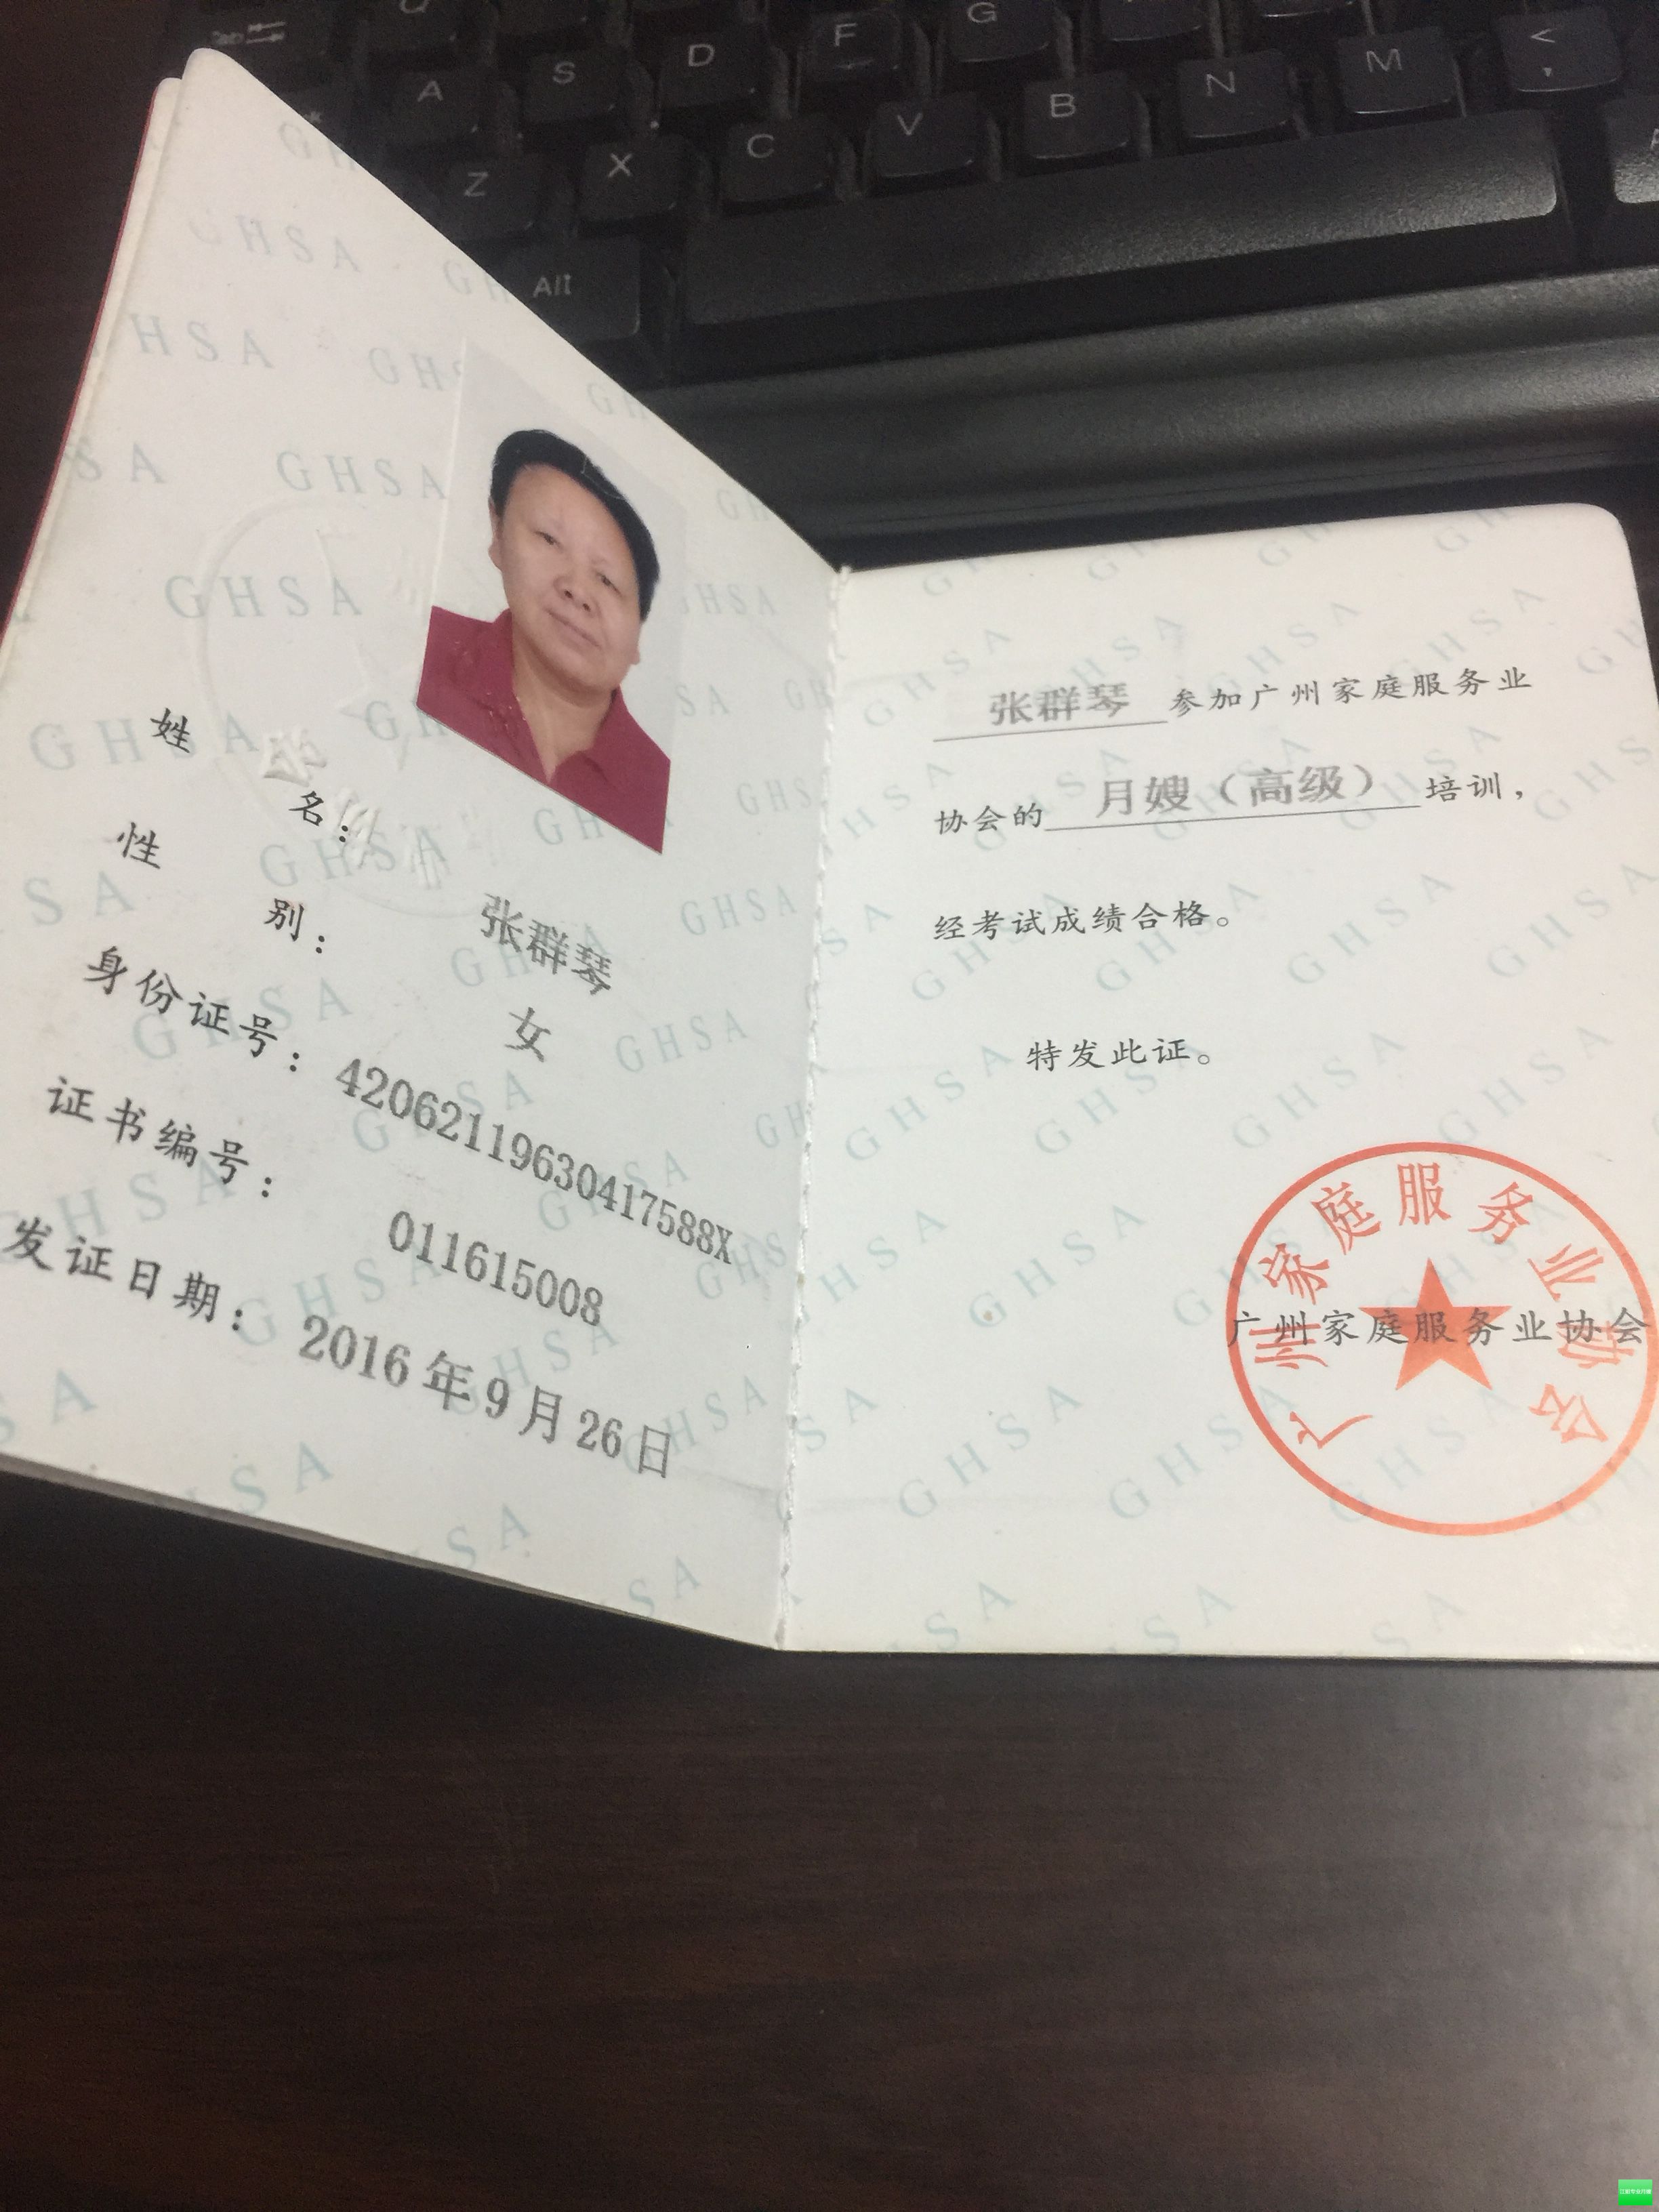 姓名：张群琴
性别：女
身份证号：42062119630417588X
证书编号：011615008
发证日期：2016年9月26日
张群琴参加广州家庭服务业
协会的月嫂（高级）培训，
经考试成绩合格。
特发此证。
广州家庭服务业协会
广州家庭服务业协会
GHSA
Alt
A
S
D
F
G
Z
X
C
V
B
N
M
<